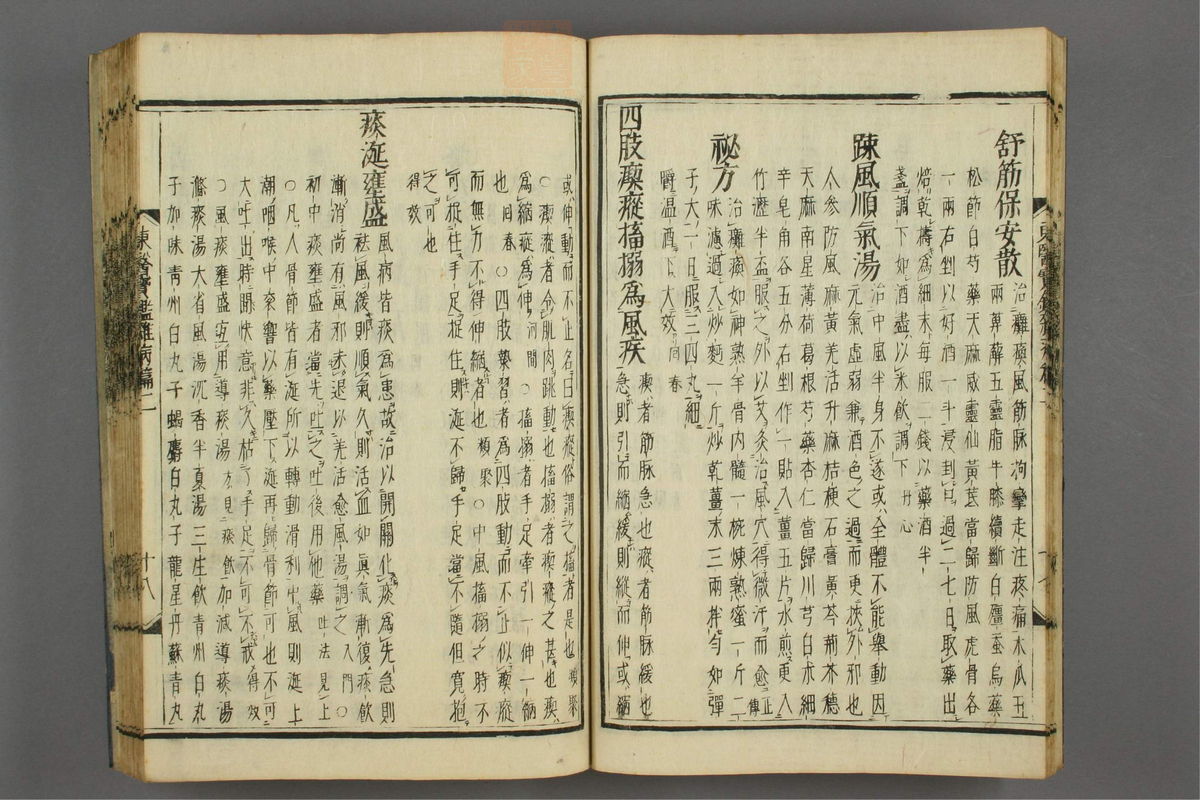 舒筋保安散治癱瘓風筋脉拘攣走注疼痛木瓜五
兩萆薢五靈脂牛膝續斷白殭蚕烏藥
松節白芍藥天麻威靈仙黃芪當歸防風虎骨各
一兩右剉以好酒一斗浸封口過二七日取藥出
焙乾擣爲細末每服二錢以藥酒半
盞調下如酒盡以米飮調下丹心
踈風順氣湯治中風半身不遂或全體不能擧動因
元氣虛弱兼酒色之過而更挾外邪也
人參防風麻黃羌活升麻桔梗石膏黃芩荊芥穗
天麻南星薄荷葛根芍藥杏仁當歸川芎白朮細
辛皂角各五分右剉作一貼入薑五片水煎更入
竹瀝半盃服之外以艾灸治風穴得微汗而愈正傳
秘方治癱瘓如神熟羊骨内髓一椀煉熟蜜一斤二
味濾過入炒麪一斤炒乾薑末三兩拌勻如彈
子大一日服三四丸細
嚼温酒下大效回春
四肢瘈瘲搐搦爲風疾瘈者筋脉急也瘲者筋脉緩也
急則引而縮緩則縱而伸或縮
或伸動而不止名曰瘈瘲俗謂之搐者是也類聚
○瘈瘲者今肌肉跳動也搐搦者瘈瘲之甚也瘈
爲縮瘲爲伸河間○搐搦者手足牽引一伸一縮
也回春○四肢欒習者爲四肢動而不止似瘈瘲
而無力不得伸縮者也類聚○中風搐搦之時不
可捉住手足捉住則涎不歸手足當不隨但寬抱
之可也
得效
痰涎壅盛風病皆痰爲患故治以開關化痰爲先急則
祛風緩則順氣久則活血如眞氣漸復痰飮
漸消尚有風邪未退以羌活愈風湯調之入門○
初中痰壅盛者當先吐之吐後用他藥吐法見上
○凡人骨節皆有涎所以轉動滑利中風則涎上
潮咽喉中衮響以藥壓下涎再歸骨節可也不可
大吐出時間快意非久枯了手足不可不戒得效
○風痰壅盛宜用導痰湯方見痰飮加減導痰湯
滌痰湯大省風湯沉香半夏湯三生飮青州白丸
子加味青州白丸子蝎麝白丸子龍星丹蘇青丸
東醫寶鑑雜病篇二
十八